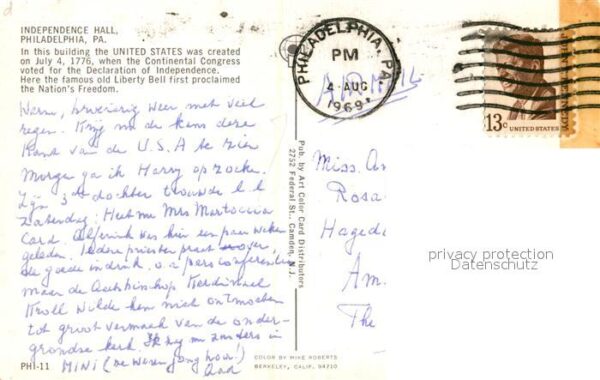 INDEPENDENCE HALL,
PHILADELPHIA, PA.
In this building the UNITED STATES was created
on July 4, 1776, when the Continental Congress
voted for the Declaration of Independence.
Here the famous old Liberty Bell first proclaimed
the Nation's Freedom.
Warm, broeierig weer met veel
regen. Krijg nu de kans deze
kant van de U.S.A te zien
Morgen ga ik Harry op zoeken.
Zijn 3de dochter trouwde l.l
Zaterdag. Heb me Mrs Martoccia
Card. Alfrink was hier een paar weken
geleden. Iedere priester praat over
de goede indruk o.a persconferentie
maar de Aartsbishop Kardinaal
Kroll wilde hem niet ontmoeten
tot groot vermaak van de onder-
grondse kerk. in
MINI (we waren jong hoor!)
PHI-11
COLOR BY MIKE ROBERTS
BERKELEY, CALIF. 94710
Pub. by Art Color Card Distributors
2752 Federal St., Camden, N.J.
PHILADELPHIA, PA.
PM
4 AUG
1969
AIR MAIL
13c UNITED STATES
KENNEDY
Miss. An
Rosa
Haged
Am.
The
privacy protection
Datenschutz